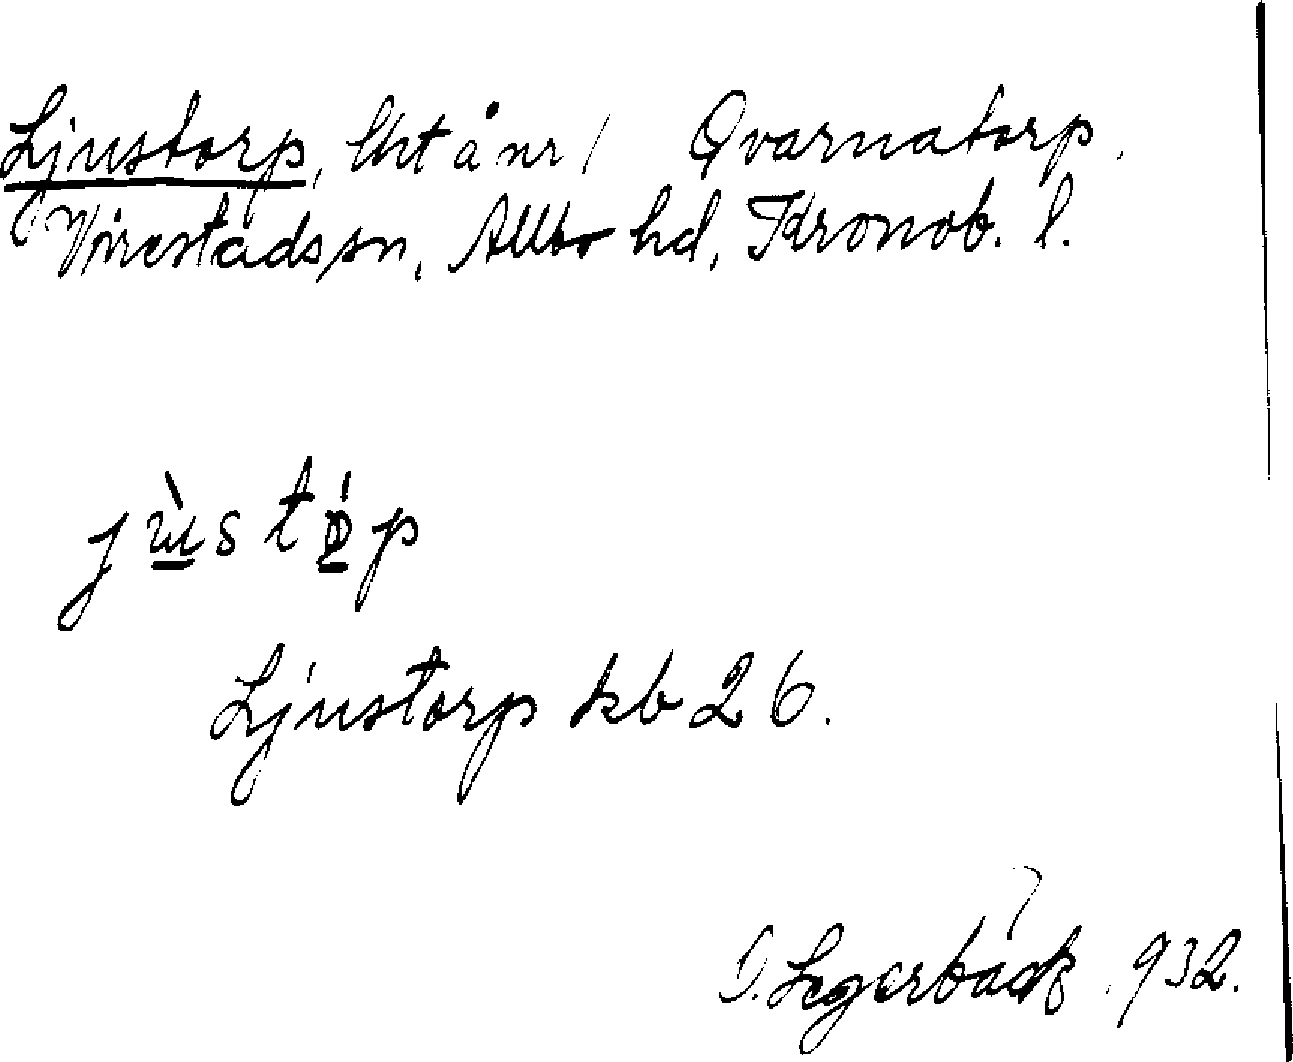 Ljustorp, Urt å nr 1 Qvarnatorp,
Virestads sn, Allbo hd, Kronob. l.
jùstɷ́p
Ljustorp kb 26.
Legerbäck 932.